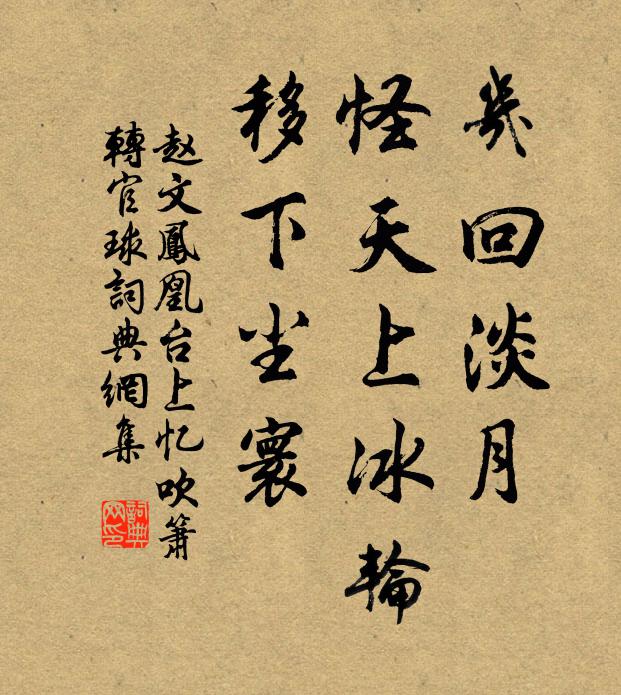 幾回淡月
怪天上冰輪
移下尘寰
赵文鳳凰台上忆吹簫
轉官球詞典網集
詞典网印